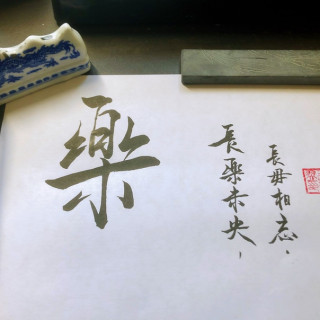 樂
長樂未央，
長毋相忘，